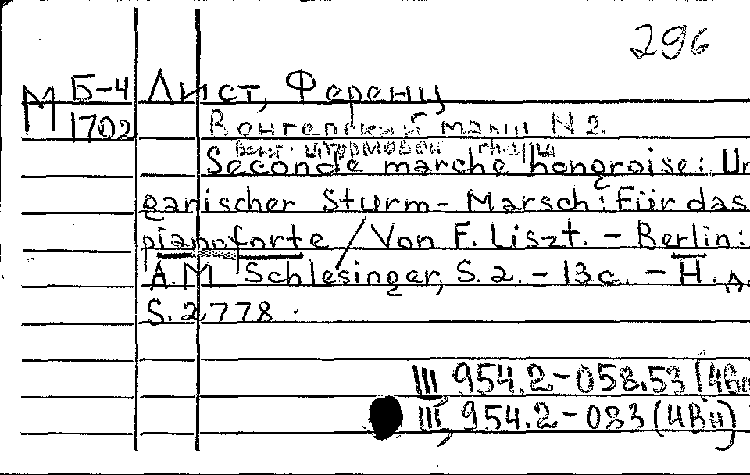 296
М Б-4 Лист, Ференц
1702 Венгерский марш N 2.
Seconde marche hongroise: Un
garischer Sturm-Marsch: Für das
pianoforte / Von F. Liszt. - Berlin:
A.M Schlesinger, S. a. - 13 с. - Н. д.
S. 2778.
III 954.2-058.53 (4Вн
III, 954.2-083 (4Вн)